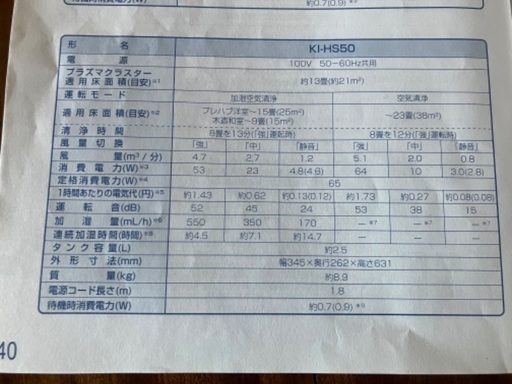 待機時消費電力(W) 約0.7(0.9) ※7
形名 KI-HS50
電源 100V 50−60Hz共用
プラズマクラスター
適用床面積(目安)※1 約13畳(約21m²)
運転モード 加湿空気清浄 空気清浄
適用床面積(目安)※2 プレハブ洋室〜15畳(25m²) 〜23畳(38m²)
木造和室〜9畳(15m²)
清浄時間 8畳を13分(「強」運転時) 8畳を12分(「強」運転時)
風量切換 「強」 「中」 「静音」 「強」 「中」 「静音」
風量(m³/分) 4.7 2.7 1.2 5.1 2.0 0.8
消費電力(W)※3 53 23 4.8(4.6) 64 10 3.0(2.8)
定格消費電力(W)※4 65
1時間あたりの電気代(円)※5 約1.43 約0.62 約0.13(0.12) 約1.73 約0.27 約0.08(0.08)
運転音(dB) 52 45 24 53 38 15
加湿量(mL/h)※6 550 350 170 —※7 —※7 —※7
連続加湿時間(時間)※8 約4.5 約7.1 約14.7 — — —
タンク容量(L) 約2.5
外形寸法(mm) 幅345×奥行262×高さ631
質量(kg) 約8.9
電源コード長さ(m) 1.8
待機時消費電力(W) 約0.7(0.9)
40